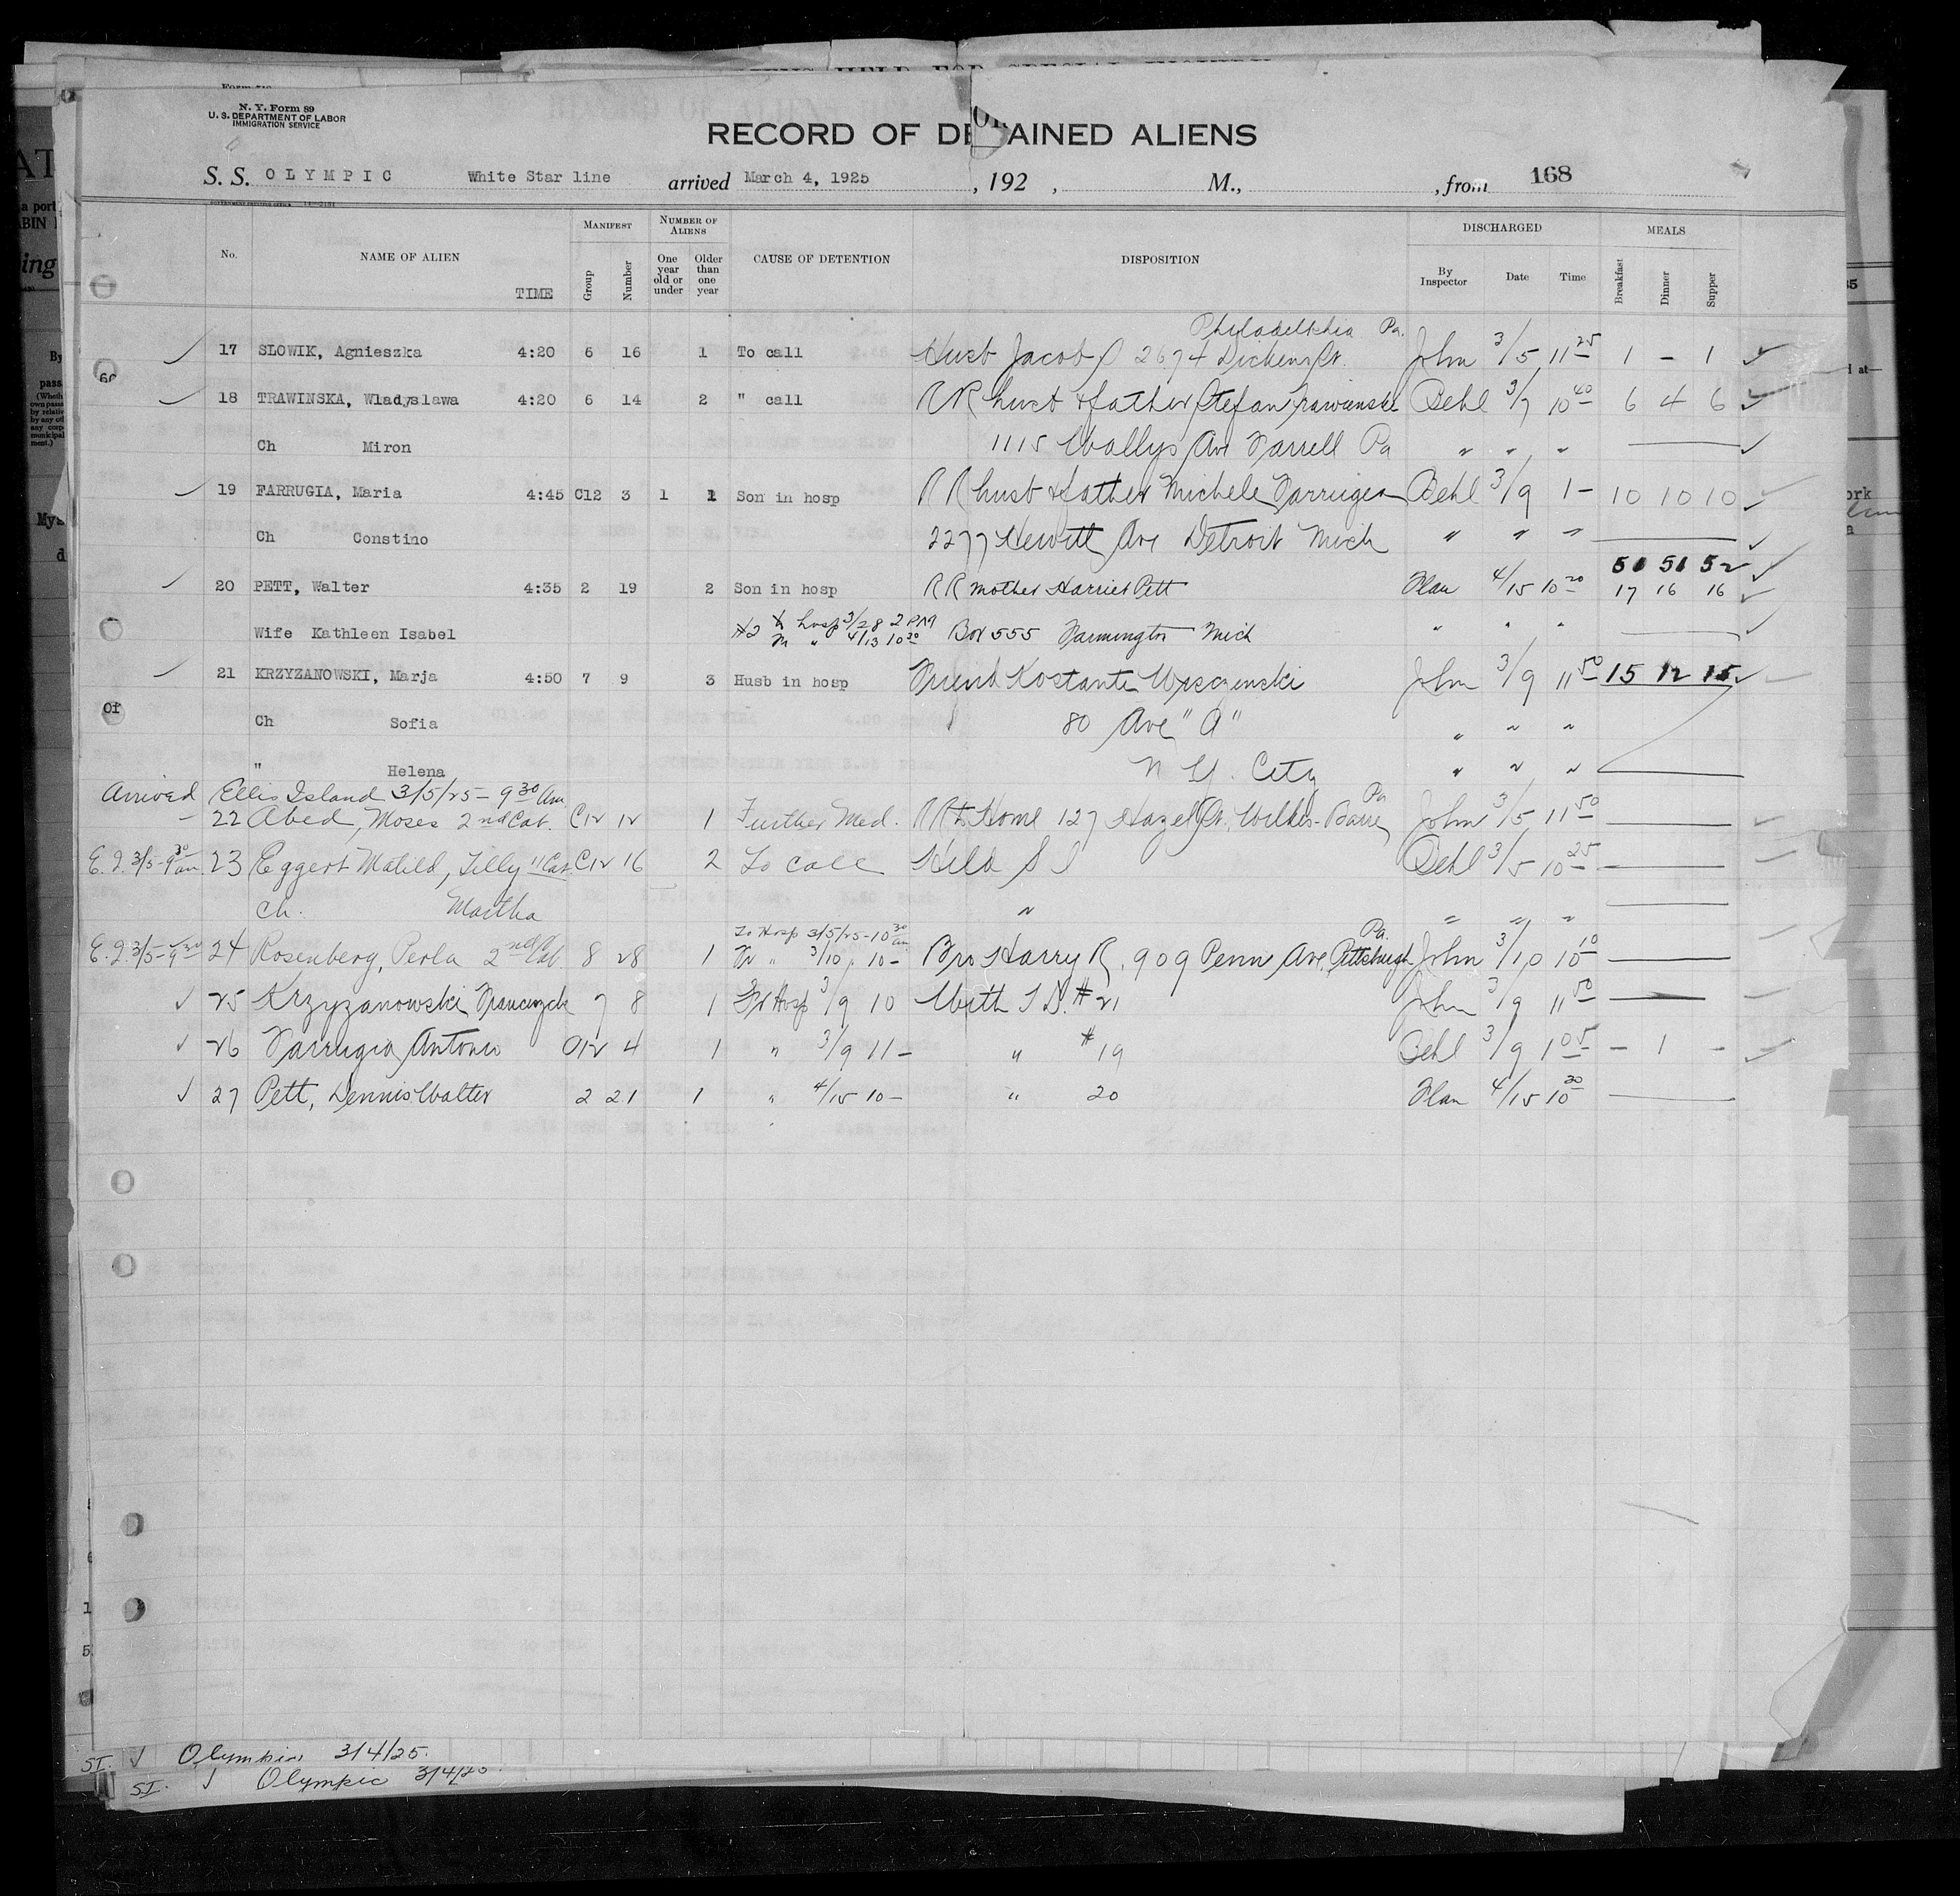 N. Y. Form 89
U. S. DEPARTMENT OF LABOR
IMMIGRATION SERVICE
RECORD OF DETAINED ALIENS
S. S. OLYMPIC White Star line arrived March 4, 1925, 192 , M., , from 168
No. NAME OF ALIEN TIME MANIFEST Group Number NUMBER OF ALIENS One year old or under Older than one year CAUSE OF DETENTION DISPOSITION DISCHARGED By Inspector Date Time MEALS Breakfast Dinner Supper
Philadelphia Pa.
17 SLOWIK, Agnieszka 4:20 6 16 1 To call Husb Jacob S 2674 Dickens St. John 3/5 11 25 1 – 1
18 TRAWINSKA, Wladyslawa 4:20 6 14 2 " call RR husb & father Stefan Trawinski Behl 3/7 10 40 6 4 6
Ch Miron 1115 Wallys Ave Farrell Pa " " "
19 FARRUGIA, Maria 4:45 C12 3 1 1 Son in hosp RR husb & father Michele Farrugia Behl 3/9 1– 10 10 10
Ch Constino 2277 Hewitt Ave Detroit Mich " " "
51 51 52
20 PETT, Walter 4:35 2 19 2 Son in hosp RR mother Harriet Pett Flan 4/15 10 20 17 16 16
Wife Kathleen Isabel #2 to hosp 3/28 2 PM Box 555 Farmington Mich " " "
Fr " 4/13 10 30
21 KRZYZANOWSKI, Marja 4:50 7 9 3 Husb in hosp Friend Kostante John 3/9 11 50 15 12 15
Ch Sofia 80 Ave "A" " " "
" Helena N Y. City " " "
Arrived Ellis Island 3/5/25 – 9 30 am
Pa
22 Abed, Moses 2nd Cab. C12 12 1 Further Med. RR to Home 127 Hazel St. Wilkes-Barre John 3/5 11 50
E. I. 3/5-9 30 am 23 Eggert Matild, Tilly " Cab. C12 16 2 To call Held S I Behl 3/5 10 25
Ch. Martha " " " "
To Hosp 3/5/25-10 30 am Pa.
E. I. 3/5-9 30 24 Rosenberg, Perla 2nd Cab. 8 28 1 Fr " 3/10 10– Bro Harry R, 909 Penn Ave, Pittsburgh John 3/10 10 10
25 Krzyzanowski 7 8 1 Fr Hosp 3/9 10 With T D. #21 John 3/9 11 50
26 Farrugia, Antonio C12 4 1 " 3/9 11– " #19 Behl 3/9 1 05 – 1 –
27 Pett, Dennis Walter 2 21 1 " 4/15 10– " 20 Flan 4/15 10 20
SI. Olympic 3/4/25.
SI. Olympic 3/4/25